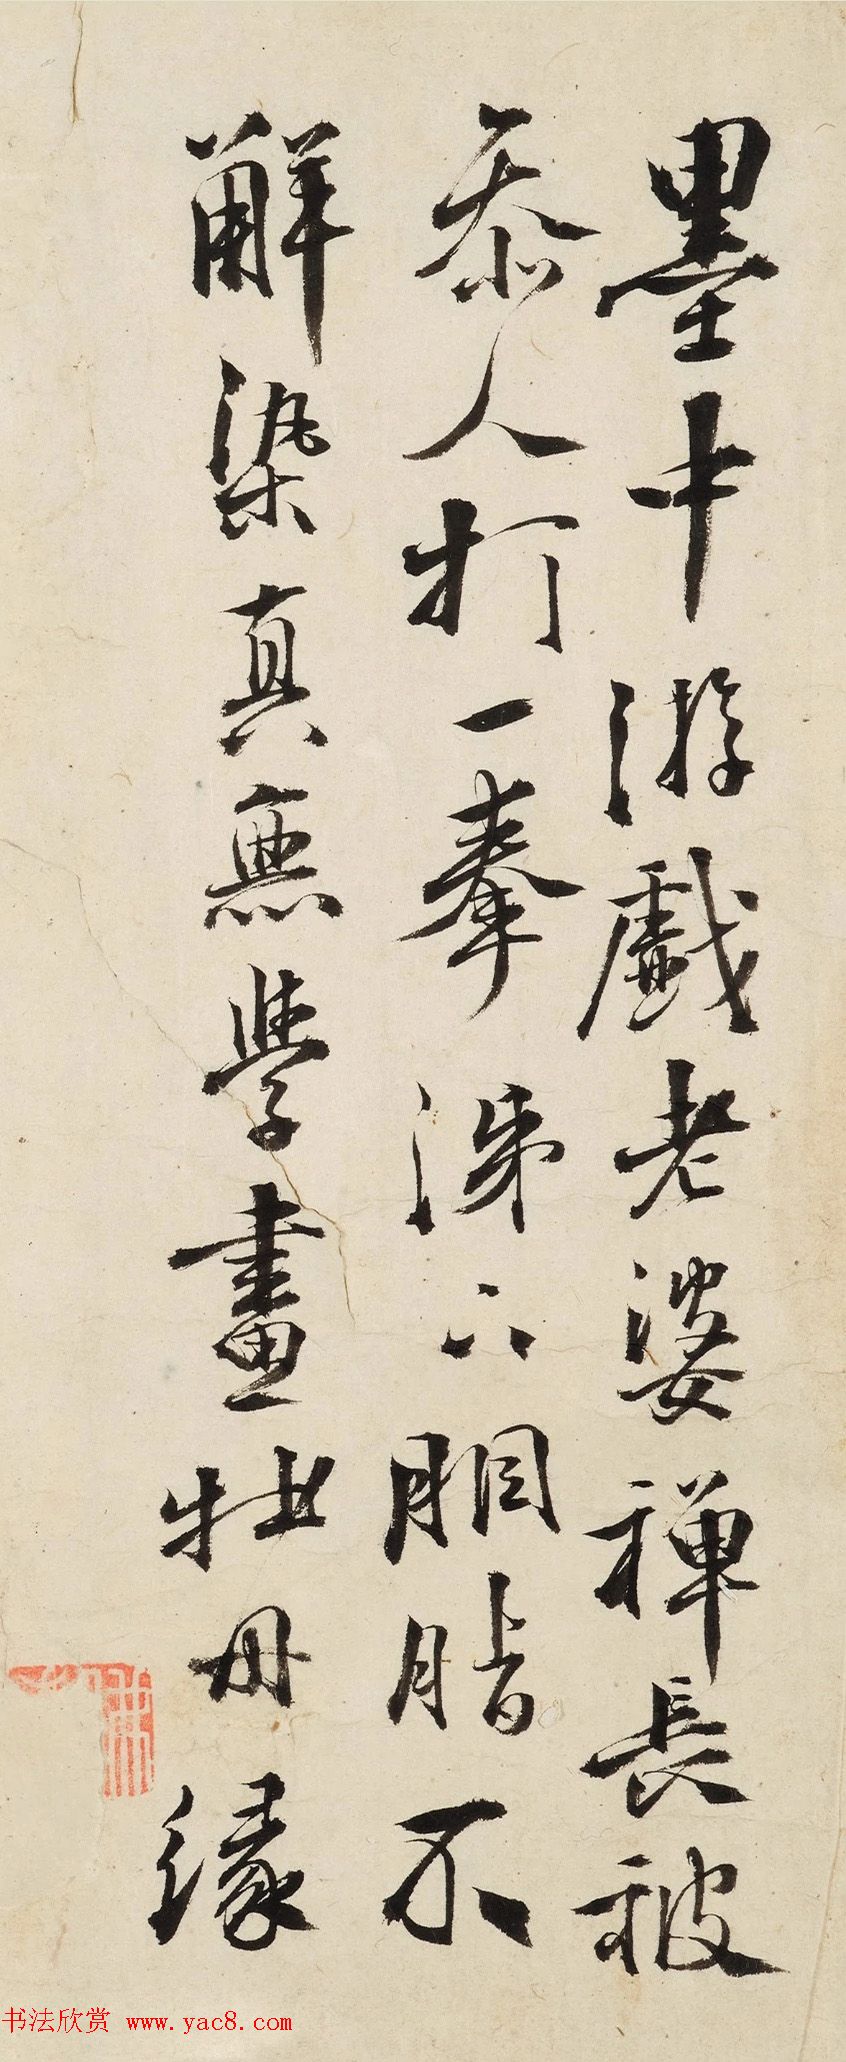 墨中游戲老婆禪長被
忝人打一拳涕下胭脂不
解染真無學畫牡丹緣
书法欣赏 www.yac8.com